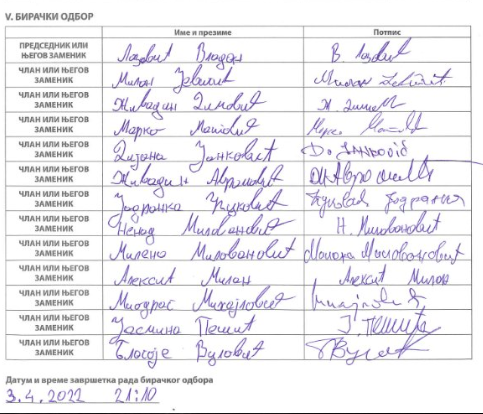 V. БИРАЧКИ ОДБОР
Име и презиме Потпис
ПРЕДСЕДНИК ИЛИ ЊЕГОВ ЗАМЕНИК Лазовић Владан В. Лазовић
ЧЛАН ИЛИ ЊЕГОВ ЗАМЕНИК Милан Милан
ЧЛАН ИЛИ ЊЕГОВ ЗАМЕНИК Живадин Симовић Ж.
ЧЛАН ИЛИ ЊЕГОВ ЗАМЕНИК Марко Матовић Марко
ЧЛАН ИЛИ ЊЕГОВ ЗАМЕНИК Дијана Јанковић
ЧЛАН ИЛИ ЊЕГОВ ЗАМЕНИК Живадин Аврамовић
ЧЛАН ИЛИ ЊЕГОВ ЗАМЕНИК Јадранка Јадранка
ЧЛАН ИЛИ ЊЕГОВ ЗАМЕНИК Ненад Миловановић Н. Миловановић
ЧЛАН ИЛИ ЊЕГОВ ЗАМЕНИК Милена Миловановић Милена Миловановић
ЧЛАН ИЛИ ЊЕГОВ ЗАМЕНИК Алексић Милан Алексић Милан
ЧЛАН ИЛИ ЊЕГОВ ЗАМЕНИК Миодраг Михајловић
ЧЛАН ИЛИ ЊЕГОВ ЗАМЕНИК Јасмина Пешић Ј. Пешић
ЧЛАН ИЛИ ЊЕГОВ ЗАМЕНИК Благоје Вуловић
Датум и време завршетка рада бирачког одбора
3.4.2022 21:10